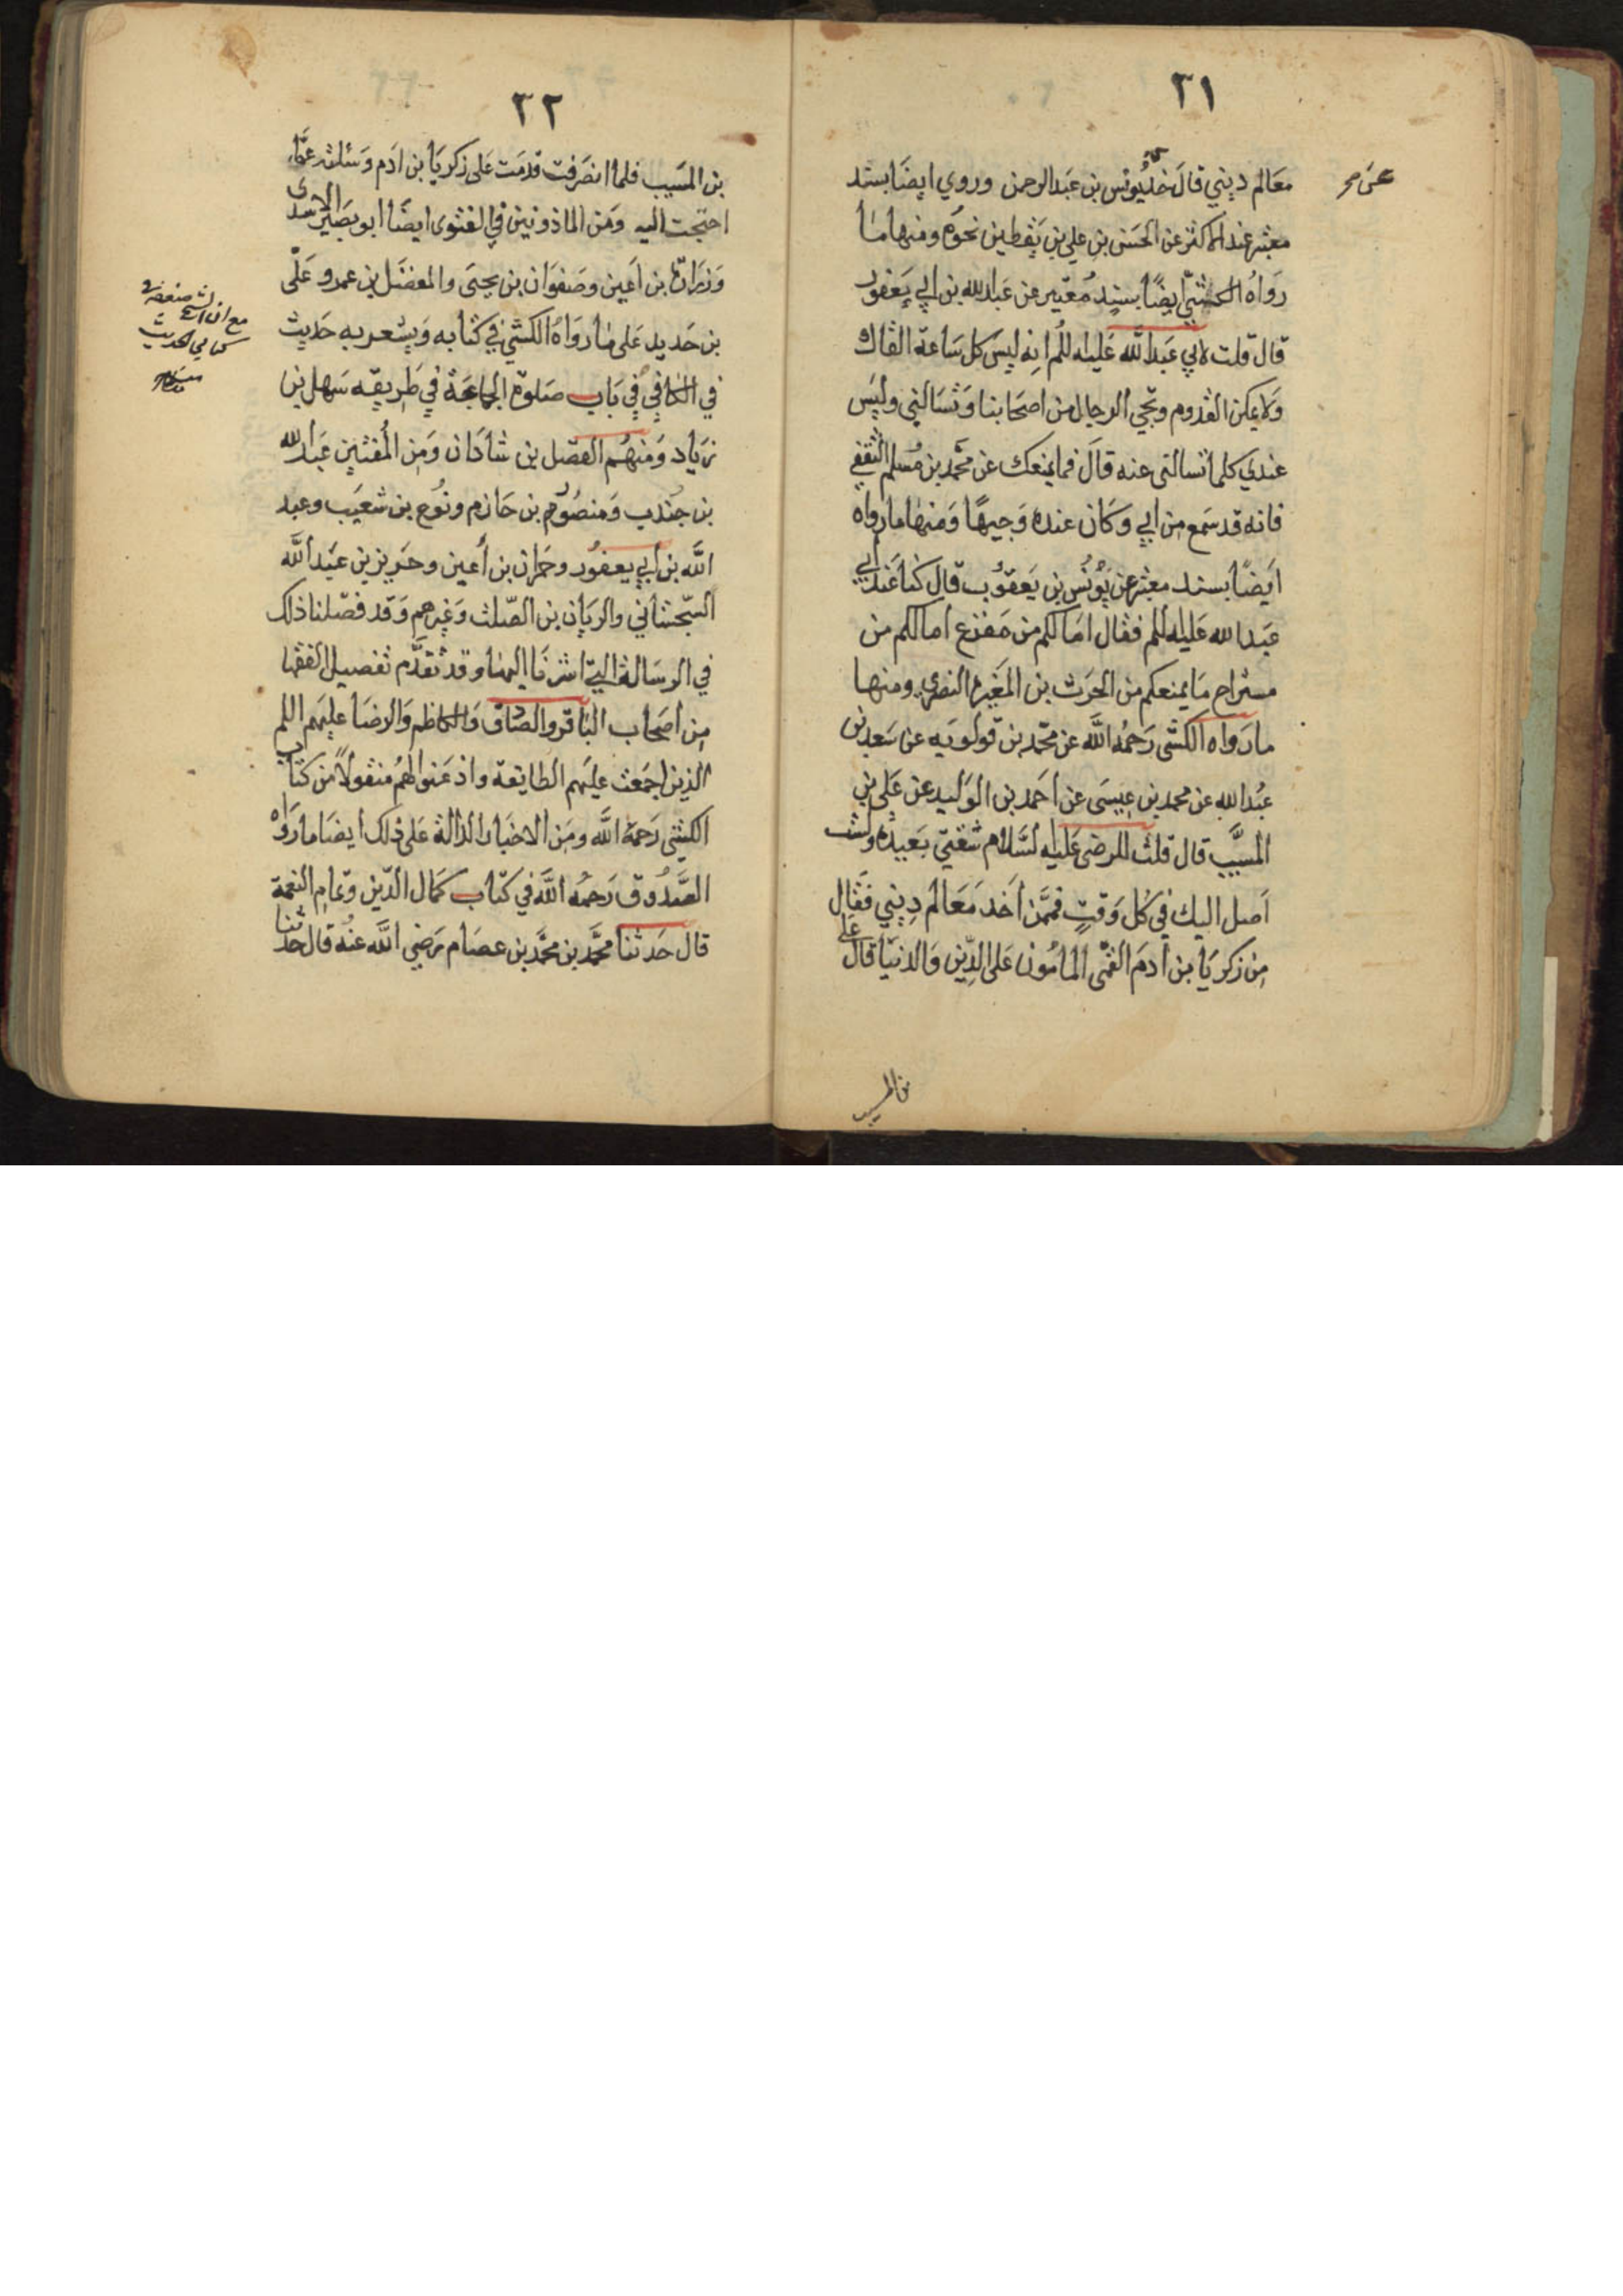 ٣١
معالم ديني قال خذ يونس بن عبد الرحمن وروي ايضا بسند
عن
معتبر عند الاكثر عن الحسن بن علي بن يقطين نحوه ومنها ما
رواه الكشي ايضا بسند معتبر عن عبد الله بن ابي يعفور
قال قلت لابي عبد الله عليه للم انه ليس كل ساعة القاك
ولا يمكن القدوم ويجي الرجل من اصحابنا ويسالني وليس
عندي كلما يسالني عنه قال فما يمنعك عن محمد بن مسلم الثقفي
فانه قد سمع من ابي وكان عنده وجيها ومنها ما رواه
ايضا بسند معتبر عن يونس بن يعقوب قال كنا عند ابي
عبد الله عليه للم فقال امالكم من مفزع امالكم من
مستراح ما يمنعكم من الحرث بن المغيرة النصري ومنها
ما رواه الكشي رحمه الله عن محمد بن قولويه عن سعد بن
عبد الله عن محمد بن عيسى عن احمد بن الوليد عن علي بن
المسيب قال قلت للرضي عليه السلام شقتي بعيدة ولست
اصل اليك في كل وقت فممن اخذ معالم ديني فقال
من زكريا بن ادم القمي المامون على الدين والدنيا قال علي
بن المسيب
٣٢
بن المسيب فلما انصرفت قدمت على زكريا بن ادم وسئلته عما
احتجت اليه ومن الماذونين في الفتوى ايضا ابو بصير الاسدي
وزرارة بن اعين وصفوان بن يحيى والمفضل بن عمرو على
بن حديد على ما رواه الكشي في كتابه ويشعر به حديث
في الكافي في باب صلوة الجماعة في طريقه سهل بن
زياد ومنهم الفضل بن شاذان ومن المفتين عبد الله
بن جندب ومنصور بن حازم ونوح بن شعيب وعبد
الله بن ابي يعفور وحمران بن اعين وحريز بن عبد الله
السجستاني والريان بن الصلت وغيرهم وقد فصلنا ذلك
في الرسالة التي اشرنا اليها وقد تقدم تفصيل الفقها
من اصحاب الباقر والصادق والكاظم والرضا عليهم اللم
الذين اجمعت عليهم الطايفة واذعنوا لهم منقولا من كتاب
الكشي رحمة الله ومن الاخبار الدالة على ذلك ايضا ما رواه
الصدوق رحمه الله في كتاب كمال الدين وتمام النعمة
قال حدثنا محمد بن محمد بن عصام رضي الله عنه قال حدثنا
مع ان الشيخ
كتابي الحديث